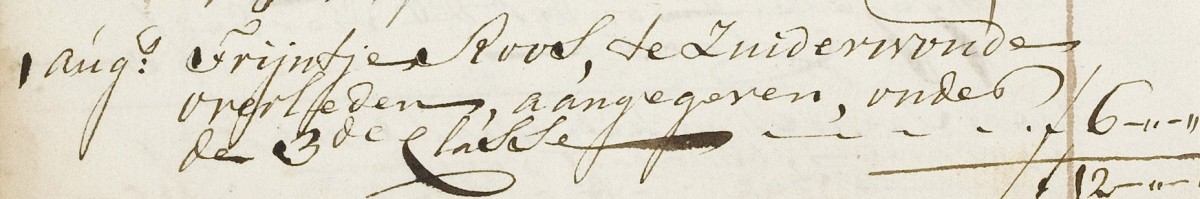 1 augs: Trijntje Roos, te Zuiderwoude
overleden, aangegeven, onder
de 3de Classe — — — — ƒ 6-"-"
ƒ 12-"-"